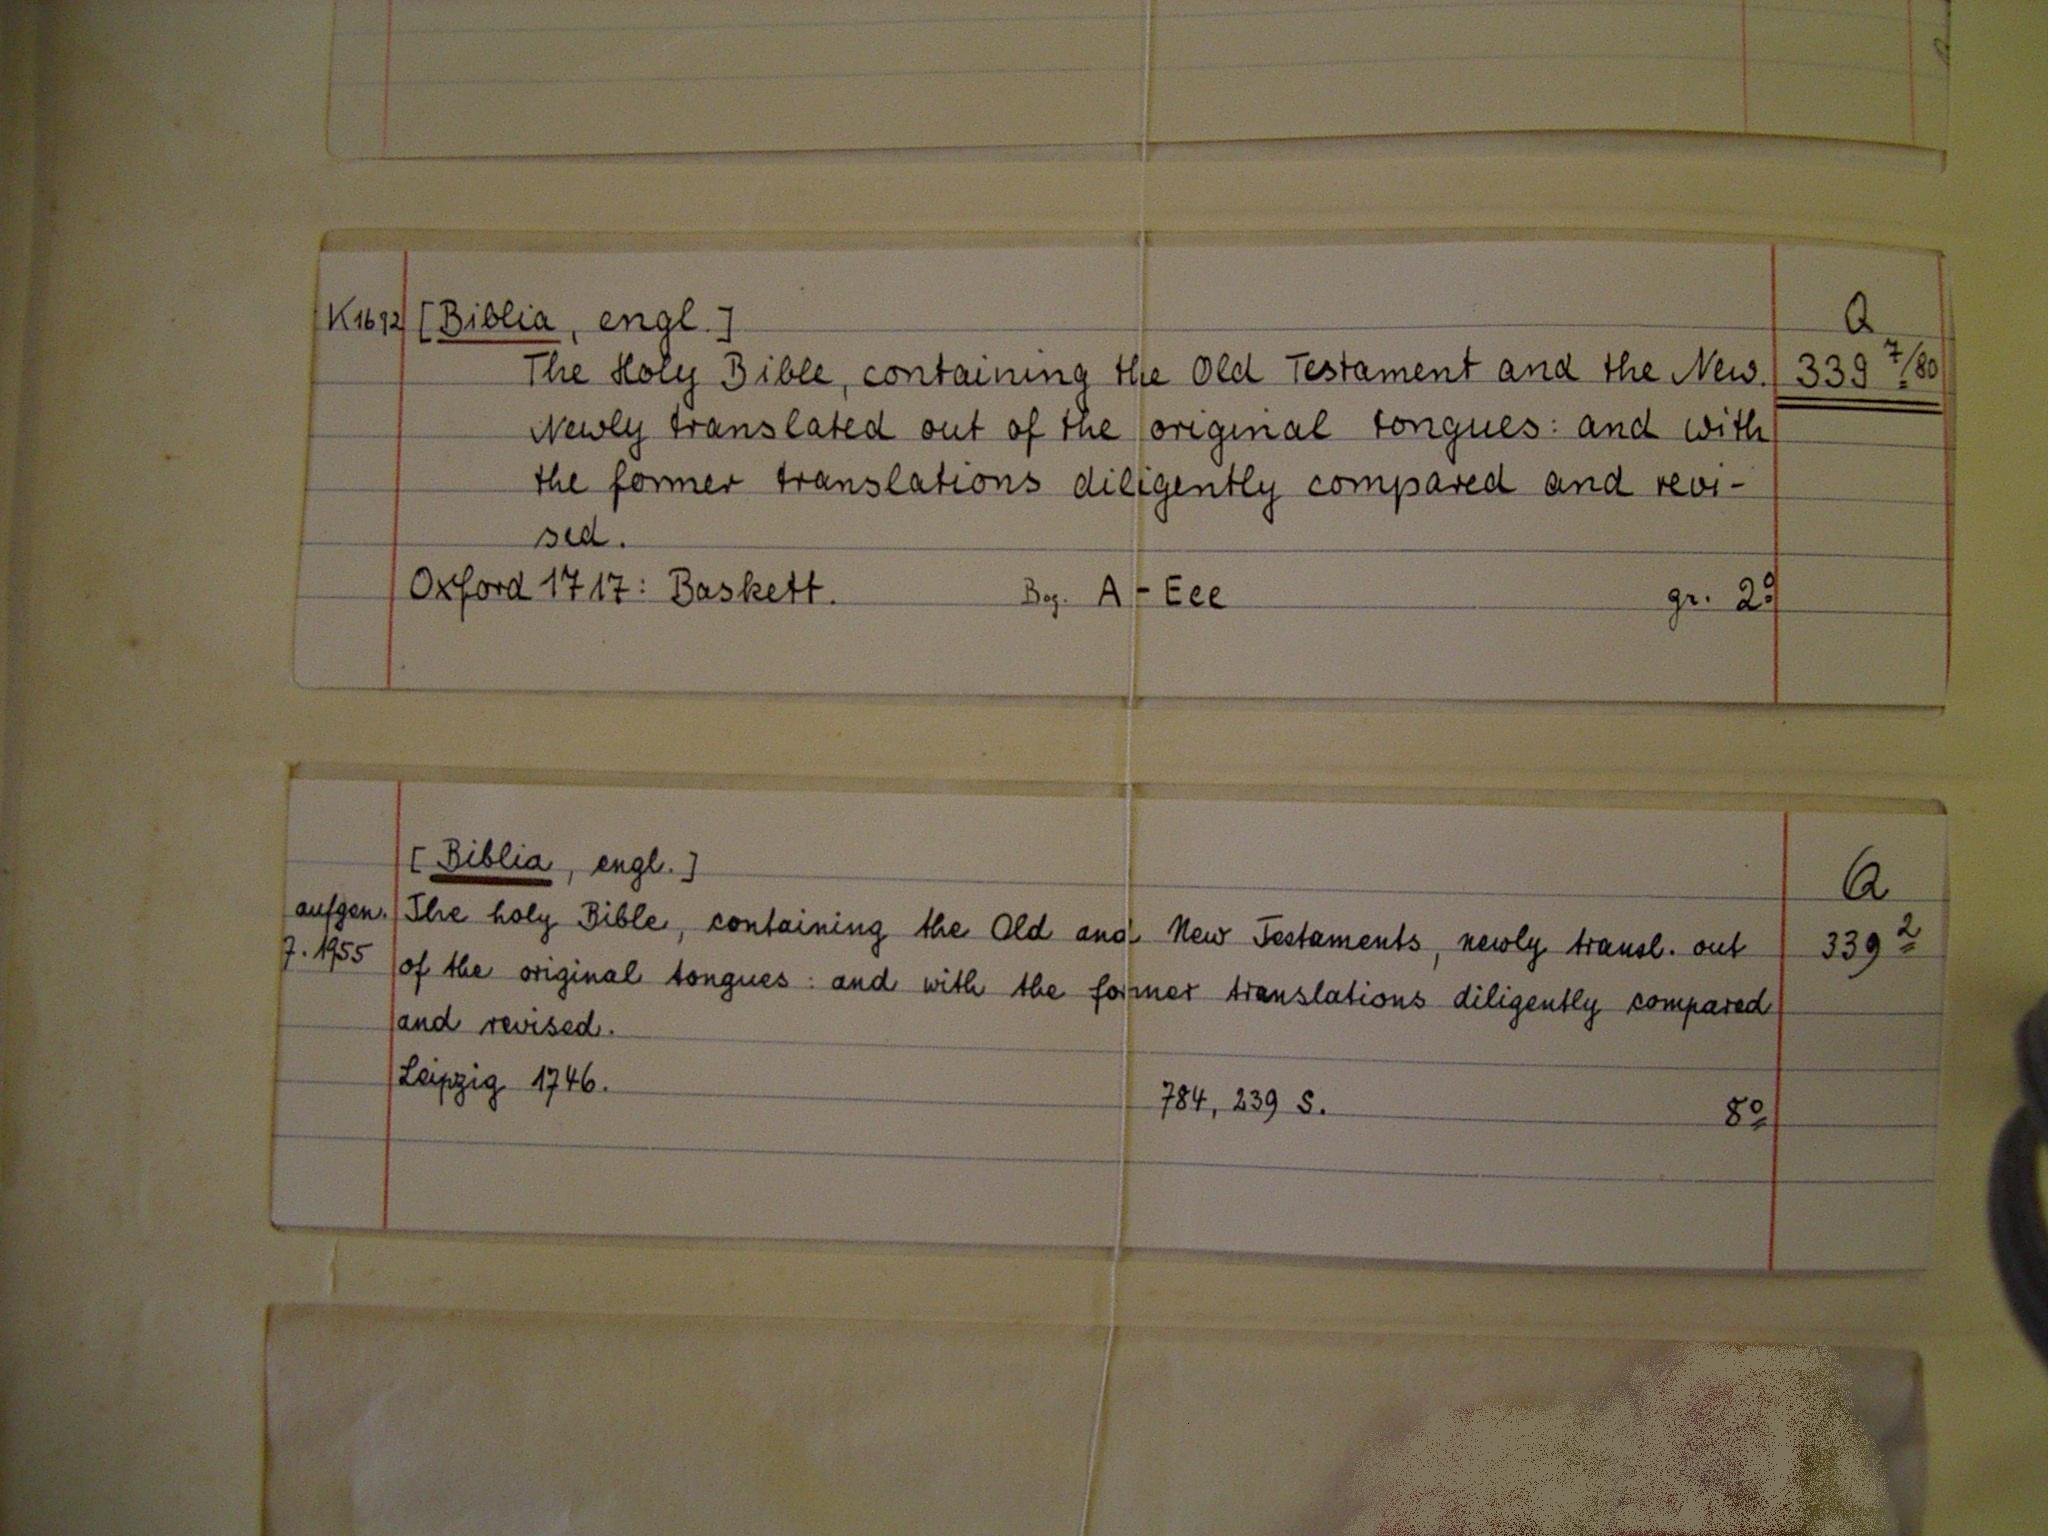 K1692 [Biblia, engl.] Q
The Holy Bible, containing the Old Testament and the New. 339 7/80
Newly translated out of the original tongues: and with
the former translations diligently compared and revi-
sed.
Oxford 1717: Baskett. Bog. A - Eee gr. 2º
[Biblia, engl.] Q
aufgen. The holy Bible, containing the Old and New Testaments, newly transl. out 339 2
7. 1955 of the original tongues: and with the former translations diligently compared
and revised.
Leipzig 1746. 784, 239 S. 8º